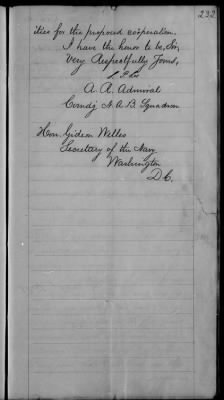 232
ities for the proposed cooperation.
I have the honor to be, Sir,
Very Respectfully Yours,
S. P. Lee
A. R. Admiral
Comdg N. A. B. Squadron
Hon. Gideon Welles
Secretary of the Navy
Washington
D.C.